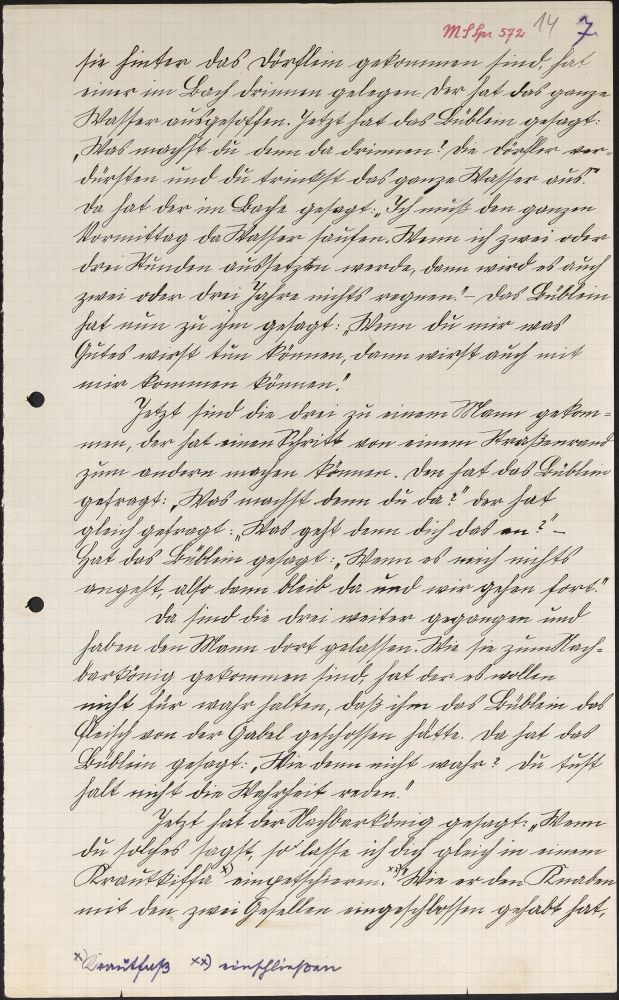 MSLpr 572 14 7
sie hinter das Dörflein gekommen sind, hat
einer im Bach drinnen gelegen. Der hat das ganze
Wasser ausgesoffen. Jetzt hat das Büblein gesagt:
„Was machst du denn da drinnen? Die Dörfler ver-
dürsten und du trinkst das ganze Wasser aus."
Da hat der im Bache gesagt: „Ich muß den ganzen
Vormittag da Wasser saufen. Wenn ich zwei oder
drei Stunden aussetzen werde, dann wird es auch
zwei oder drei Jahre nichts regnen." – Das Büblein
hat nun zu ihm gesagt: „Wenn du mir was
Gutes wirst tun können, dann wirst auch mit
mir kommen können."
Jetzt sind die drei zu einem Mann gekom=
men, der hat einen Schritt von einem Straßenrand
zum andern machen können. Den hat das Büblein
gefragt: „Was machst denn du da?" Der hat
gleich gefragt: „Was geht denn dich das an?" –
Hat das Büblein gesagt: „Wenn es mich nichts
angeht, also dann bleib da und wir gehen fort."
Da sind die drei weiter gegangen und
haben den Mann dort gelassen. Wie sie zum Nach-
barkönig gekommen sind, hat der es wollen
nicht für wahr halten, daß ihm das Büblein das
Fleisch von der Gabel geschossen hätte. Da hat das
Büblein gesagt: „Wie denn nicht wahr? Du tust
halt nicht die Wahrheit reden."
Jetzt hat der Nachbarkönig gesagt: „Wenn
du solches sagst, so lasse ich dich gleich in einem
Krautkiffa x) einpetschieren." xx) Wie er den Knaben
mit den zwei Gesellen eingeschlossen gehabt hat,
x) Krautfaß xx) einschließen